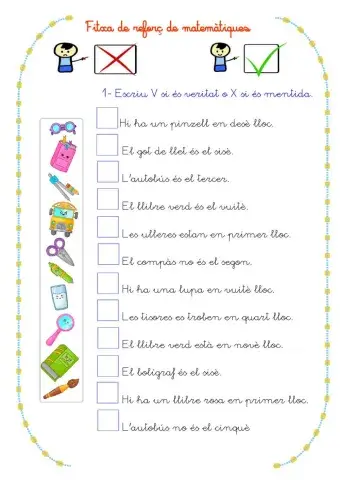 Fitxa de reforç de matemàtiques
1- Escriu V si és veritat o X si és mentida.
Hi ha un pinzell en desè lloc.
El got de llet és el sisè.
L'autobús és el tercer.
El llibre verd és el vuitè.
Les ulleres estan en primer lloc.
El compàs no és el segon.
Hi ha una lupa en vuitè lloc.
Les tisores es troben en quart lloc.
El llibre verd està en novè lloc.
El boligraf és el sisè.
Hi ha un llibre rosa en primer lloc.
L'autobús no és el cinquè